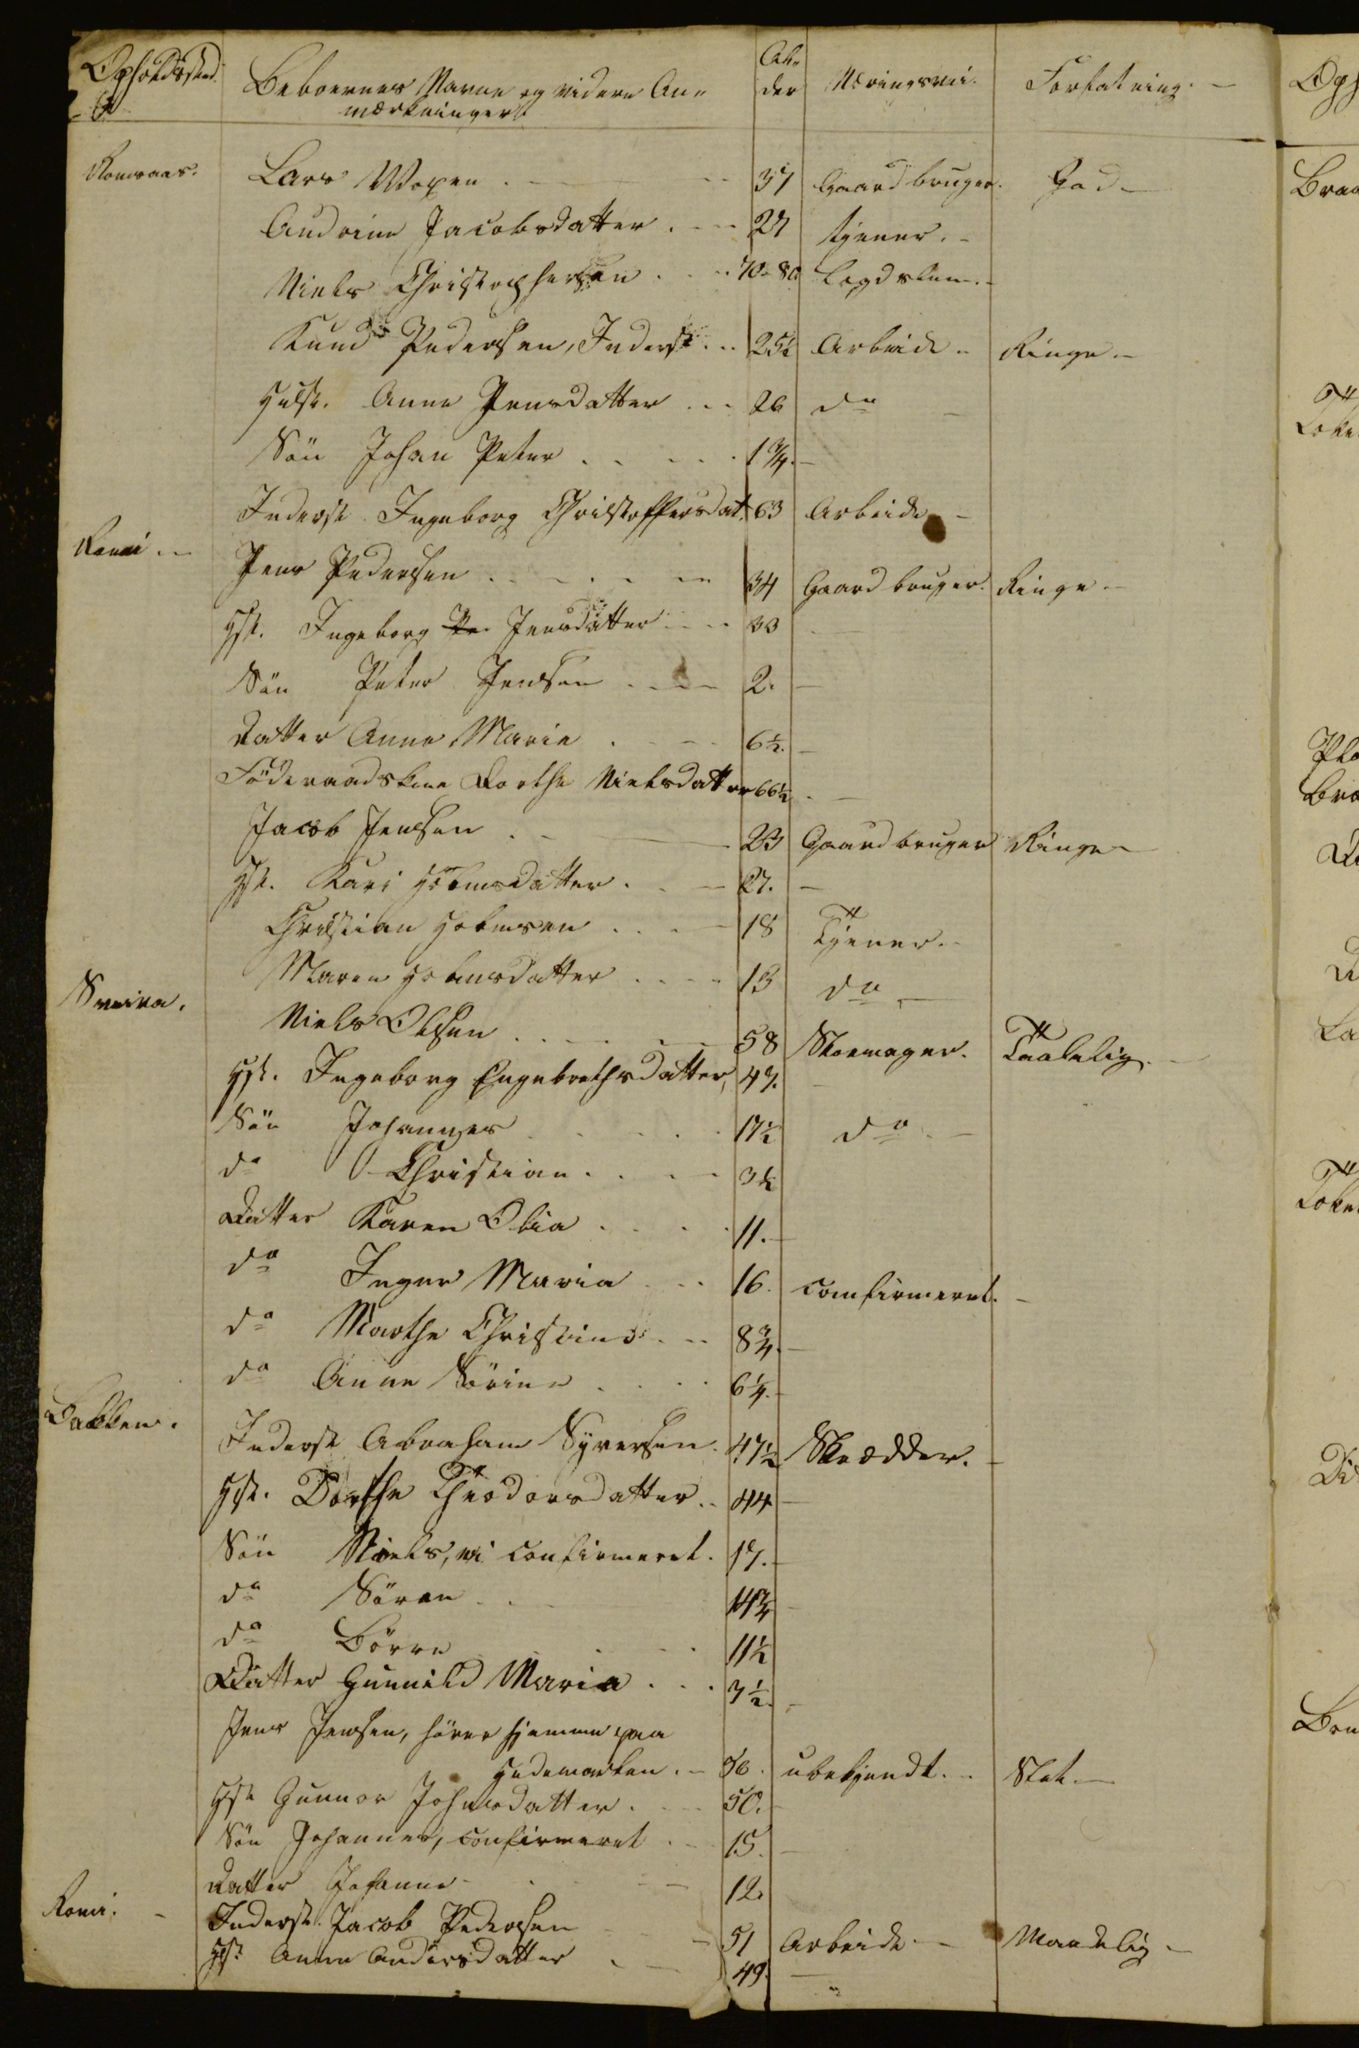 Opholdssted. Beboernes Navne og videre An- Al- Næringsvei. Forfatning.
mærkninger der
Romsaas. Lars Moxen 37 Gaardbruger. God
Andrine Jacobsdatter 27 tjener.
Niels Christophersen 70-80 Legdslem.
Knud Pedersen, Inderst 25½ Arbeide Ringe
Hust. Anne Jensdatter 26 do
Søn Johan Peter 1¾
Inderst Ingeborg Christoffersdat. 63 Arbeide
Jens Pedersen 34 Gaardbruger. Ringe
Hst. Ingeborg Jensdatter 33
Søn Peter Jensen 2.
Datter Anne Marie 6½.
Föderaadskone Dorthe Nielsdatter 66½
Jacob Jensen 23 Gaardbruger Ringe
Hst. Kari Holmsdatter 27.
Christian Holmsen 18 Tjener.
Maren Holmsdatter 13 do
Niels Olsen 58 Skomager. Taalelig.
Hst. Ingeborg Engebrethsdatter, 47.
Søn Johannes 17½ do
do Christian 3½
Datter Karen Olia 11.
do Inger Maria 16. confirmeret.
do Marthe Christine 8¾.
do Anne Sørine 6¼.
Bakken. Inderst Abraham Syversen. 47½ Skrædder.
Hst. Dorthe Theodorsdatter 44
Søn Niels, ei confirmeret. 17.
do Søren 14¾
do Börre 11½
Datter Gunnild Maria 3½.
Jens Jensen, hører hjemme paa
Hedemarken. 56. ubekjendt. Slet
Hst Gunnor Johnsdatter 50.
Søn Johannes, confirmeret 15.
Datter Johanne 12.
Inderst Jacob Pedersen 51 Arbeide Maadelig
Hst. Anne Andersdatter 49.